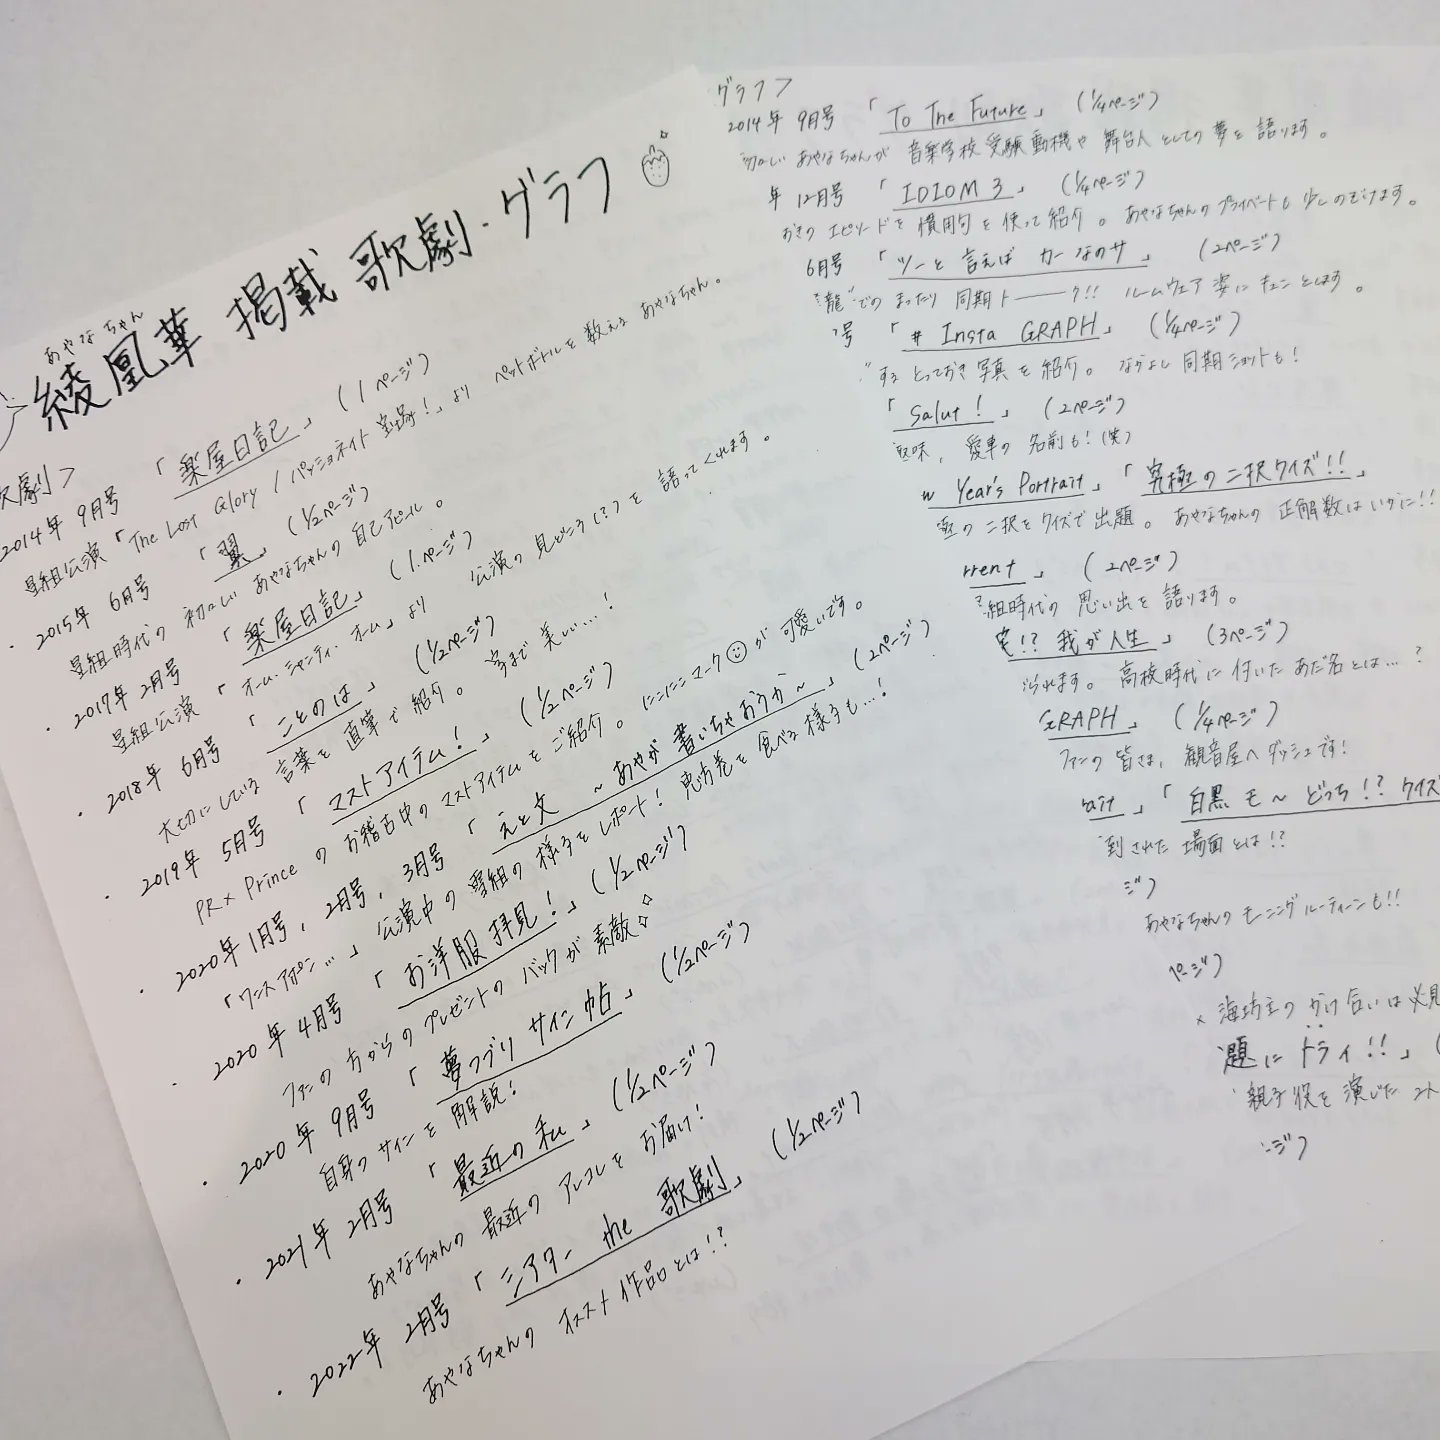 あやなちゃん
綾凰華 掲載 歌劇・グラフ
歌劇>
2014年 9月号 「楽屋日記」 (1ページ)
星組公演「The Lost Glory / パッショネイト宝塚!」より ペットボトルを数える あやなちゃん。
・2015年 6月号 「翼」 (1/2ページ)
星組時代の 初々しい あやなちゃんの 自己アピール。
・2017年 2月号 「楽屋日記」 (1ページ)
星組公演 「オーム・シャンティ・オーム」より 公演の見どころ(?)を 語ってくれます。
・2018年 6月号 「ことのは」 (1/2ページ)
大切にしている 言葉を 直筆で 紹介。 字まで 美しい…!
・2019年 5月号 「マストアイテム!」 (1/2ページ)
PR×Princeの お稽古中の マストアイテムを ご紹介。 にこにこマーク☺が 可愛いです。
・2020年 1月号, 2月号, 3月号 「えと文 ~あやが 書いちゃおうか~」 (2ページ)
「ワンスアポン…」公演中の 雪組の 様子を レポート! 恵方巻を 食べる 様子も…!
・2020年 4月号 「お洋服拝見!」 (1/2ページ)
ファンの 方からの プレゼントの バックが 素敵
・2020年 9月号 「夢つづり サイン帖」 (1/2ページ)
自身の サインを 解説!
・2021年 2月号 「最近の私」 (1/2ページ)
あやなちゃんの 最近の アレコレを お届け!
・2022年 2月号 「シアター the 歌劇」 (1/2ページ)
あやなちゃんの オススト 作品とは!?
グラフ>
2014年 9月号 「To The Future」 (1/4ページ)
初々しい あやなちゃんが 音楽学校 受験動機や 舞台人としての 夢を 語ります。
年 12月号 「IDIOM 3」 (1/4ページ)
おきの エピソードを 慣用句を 使って 紹介。 あやなちゃんの プライベートも 少しのぞけます。
6月号 「ツーと 言えば カーなのサ」 (2ページ)
"龍"での まったり 同期トーーーク!! ルームウェア姿に キュンとします。
号 「# Insta GRAPH」 (1/4ページ)
する とっておき 写真を 紹介。 なかよし 同期ショットも!
「Salut!」 (2ページ)
趣味, 愛車の 名前も!(笑)
w Year's Portrait」「究極の 二択クイズ!!」
極の 二択を クイズで 出題。 あやなちゃんの 正解数は いかに!!
rrent」 (2ページ)
組時代の 思い出を 語ります。
!? 我が人生」 (3ページ)
られます。 高校時代に 付いた あだ名とは…?
GRAPH」 (1/4ページ)
ファンの 皆さま, 観音屋へ ダッシュです!
rait」「白黒 モ~ どっち!? クイズ
倒された 場面とは!?
ジ)
あやなちゃんの モーニングルーティーンも!!
ページ)
× 海坊主の かけ合いは 必見
題に トライ!!」 (
親子役を 演じた コト
ージ)